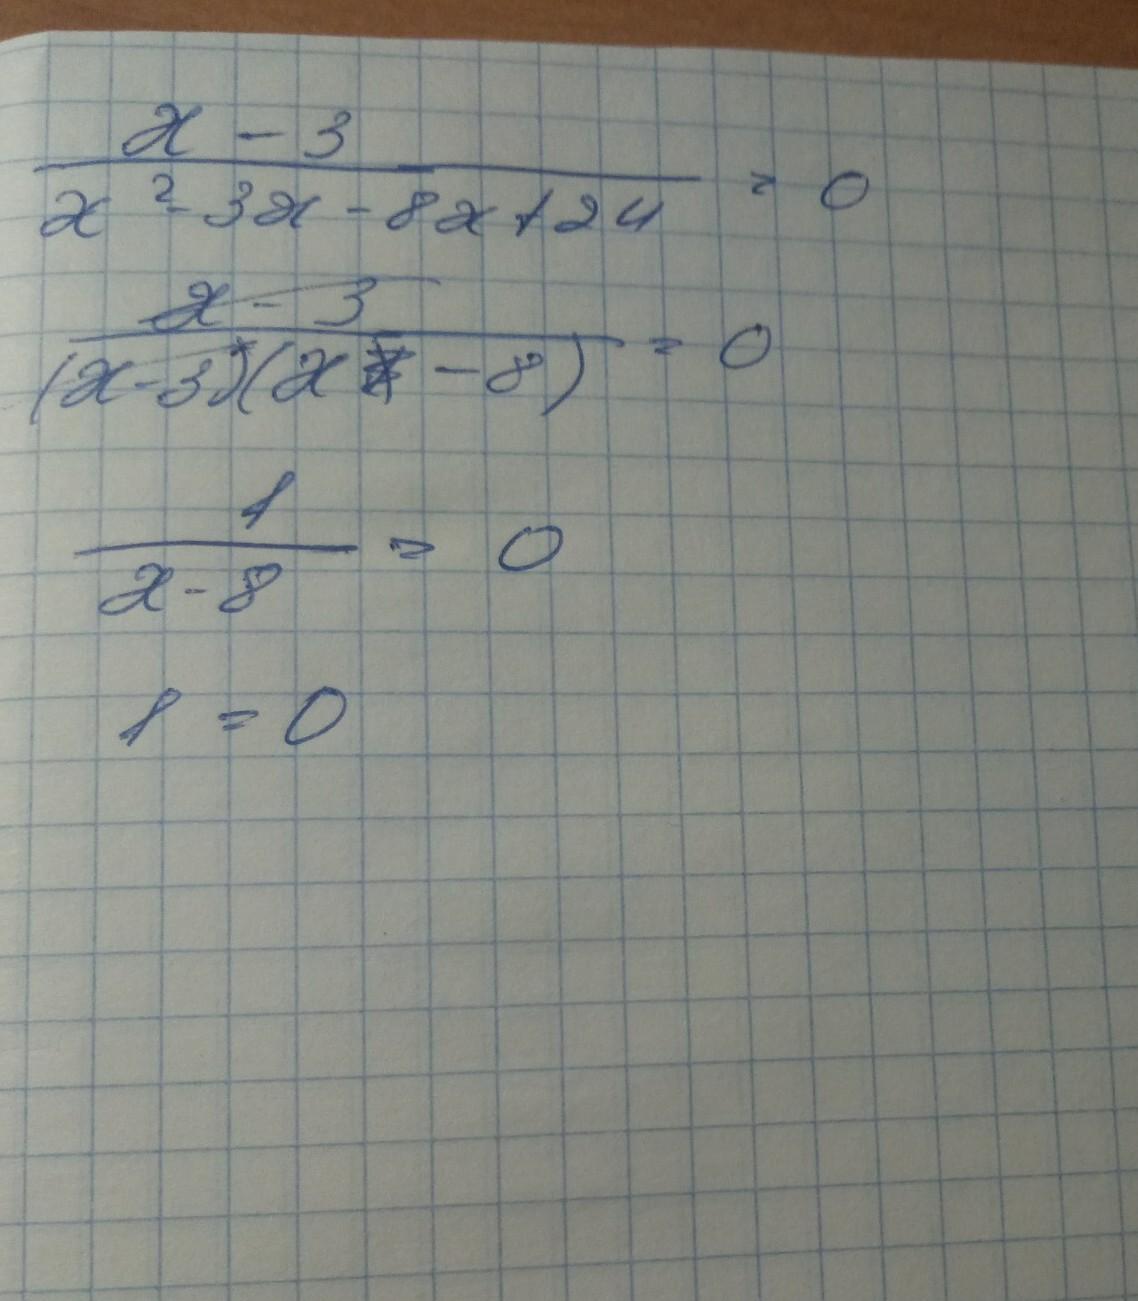 x - 3
x² - 3x - 8x + 24 = 0
x - 3
(x - 3)(x - 8) = 0
1
x - 8 = 0
1 = 0